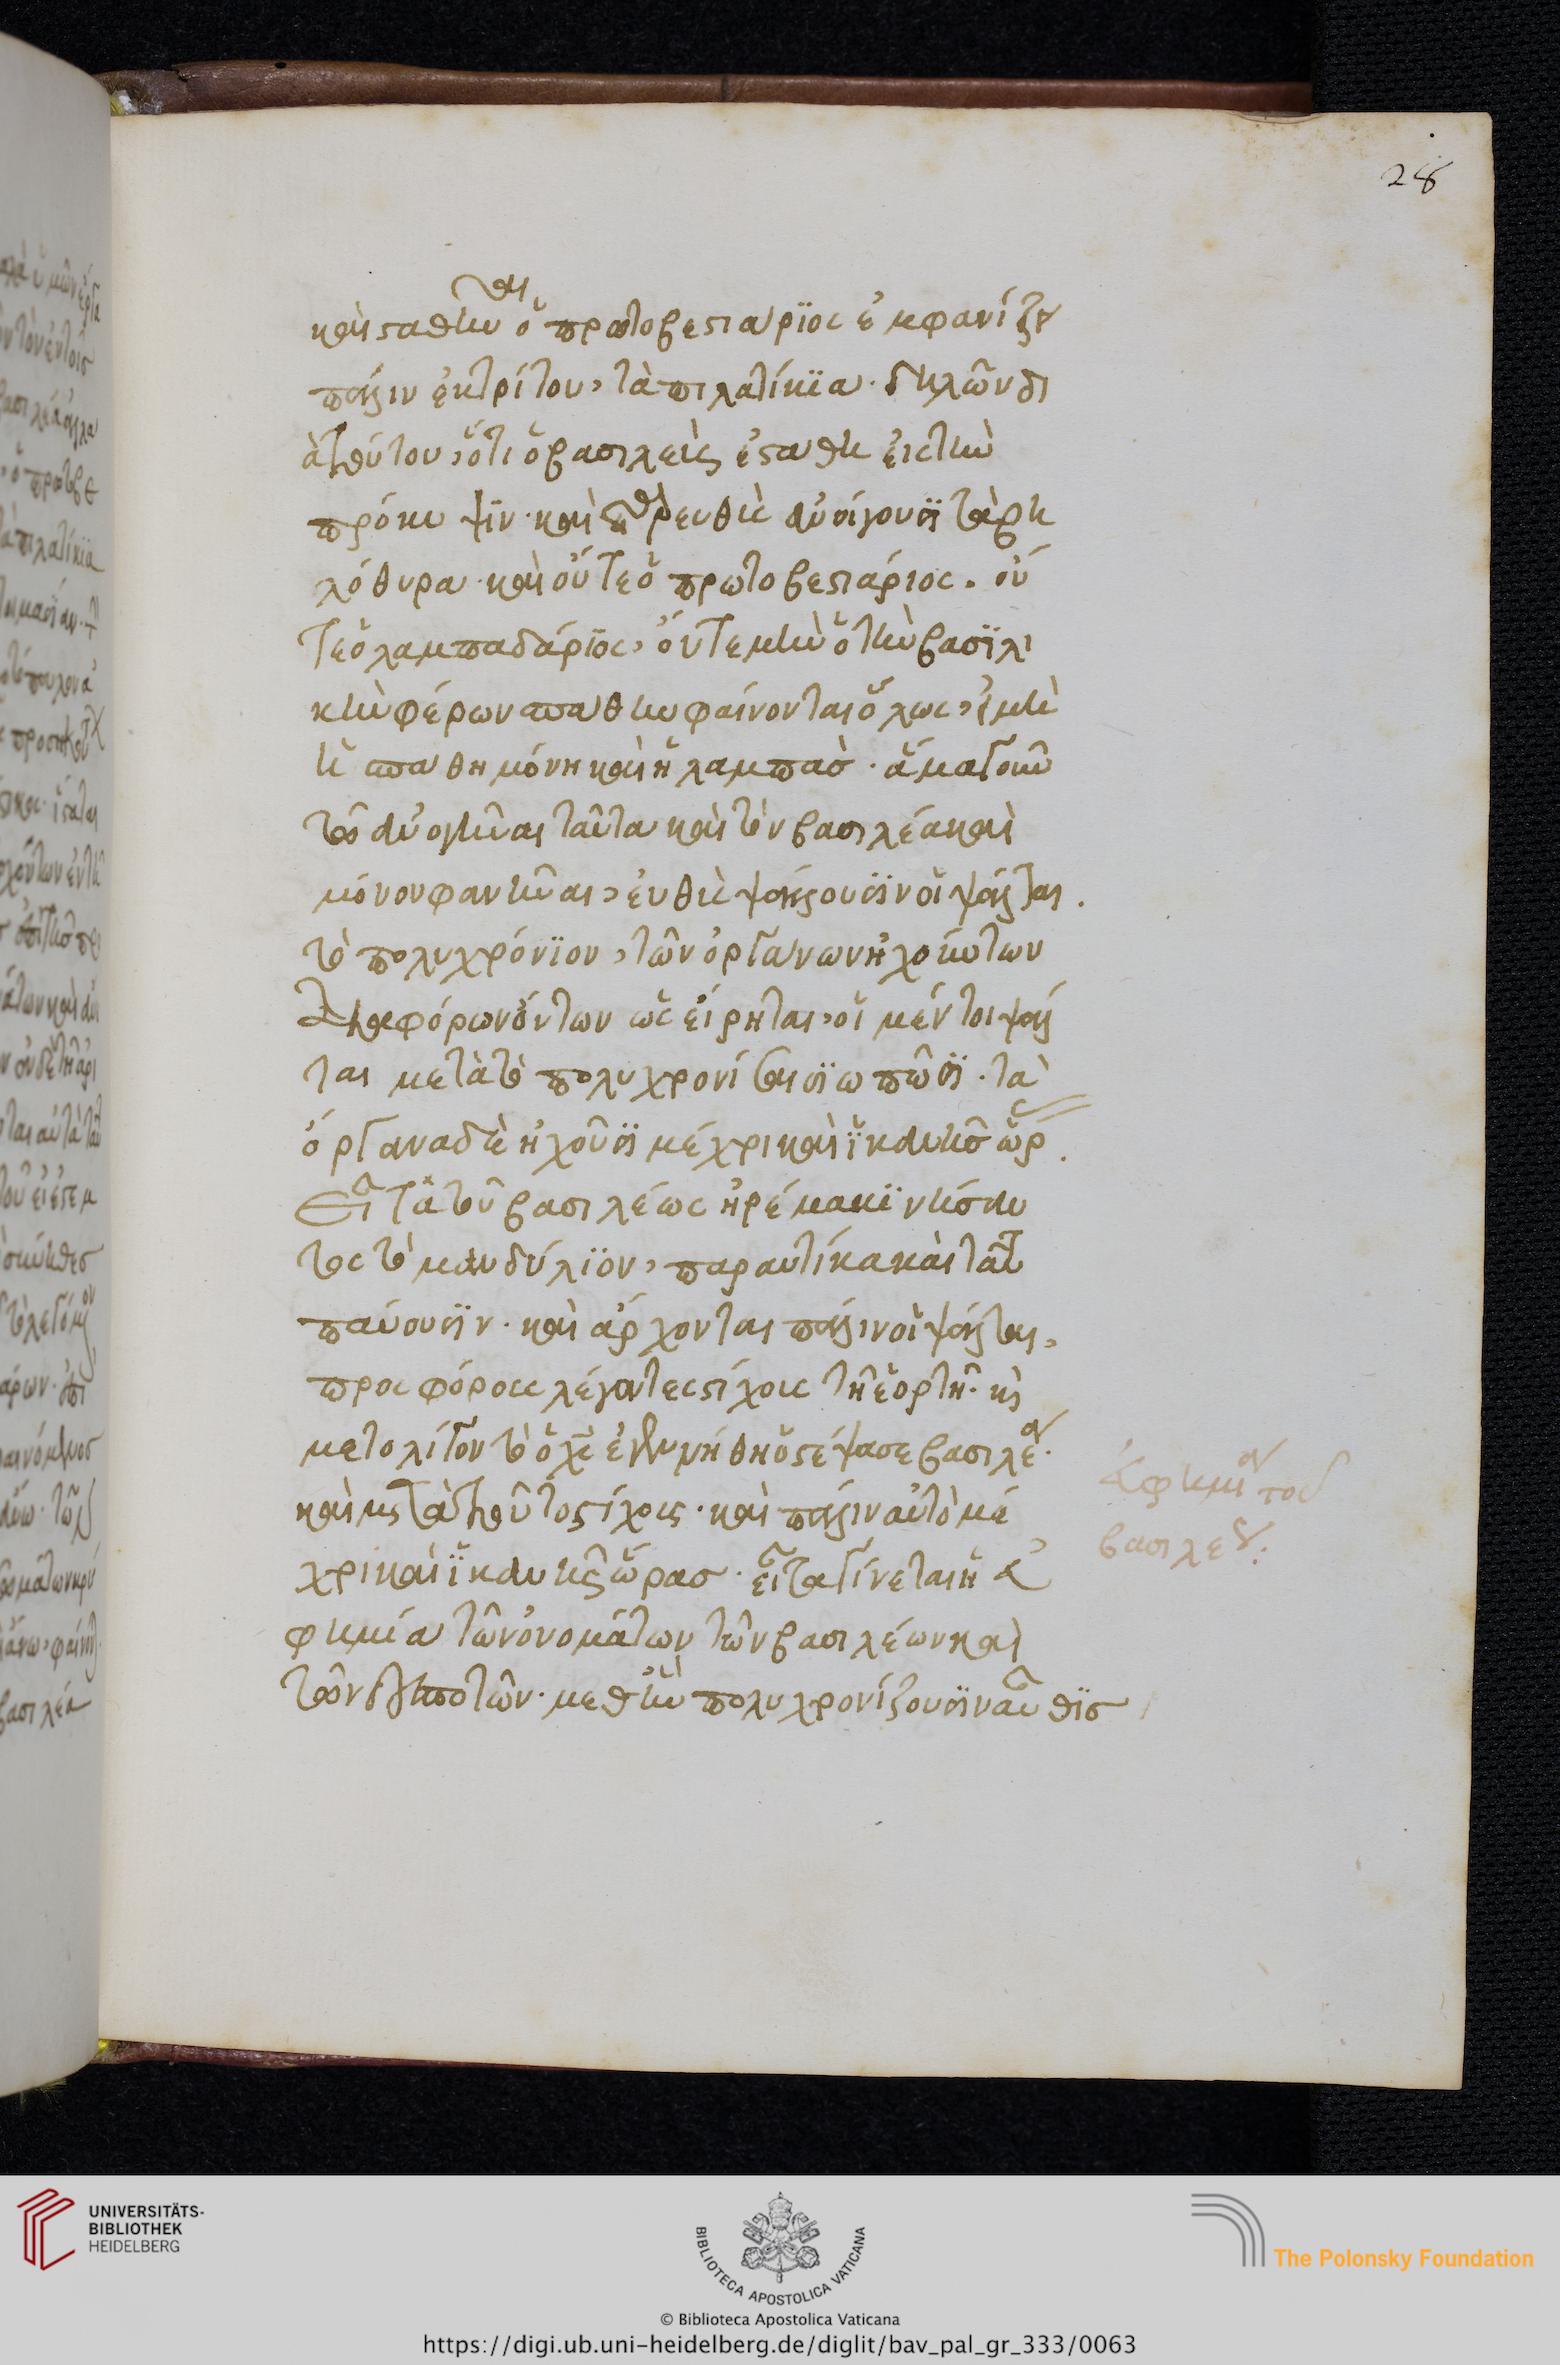 28
καὶ σταθεὶς ὁ πρωτοβεστιάριος ἐμφανίζει
πάλιν ἐκ τρίτου, τὰ πιλατίκϊα. δηλῶν δι
ὰ τούτου, ὅτι ὁ βασιλεὺς ἐστάθη εἰς τὴν
πρόκυψϊν. καὶ εὐθὺς ἀνοίγουσϊ τὰ βη
λόθυρα. καὶ οὔτε ὁ πρωτοβεστιάριος. οὔ
τε ὁ λαμπαδάρϊος, οὔτε μὴν ὁ τὴν βασϊλι
κὴν φέρων σπάθην φαίνονται ὅλως, εἰ μὴ
ἡ σπάθη μόνη καὶ ἡ λαμπὰς. ἅμα γοῦν
τῷ ἀνοιγῆναι ταῦτα καὶ τὸν βασιλέα καὶ
μόνον φανῆναι, εὐθὺς ψάλλουσϊν οἱ ψάλται.
τὸ πολυχρόνϊον, τῶν ὀργάνων ἠχούντων
ὡς εἴρηται, οἱ μέν τοι ψάλ
ται μετὰ τὸ πολυχρονίσαι σϊωπῶσϊ. τὰ
ὄργανα δὲ ἠχοῦσϊ μέχρι καὶ ἱκανῆς ὥρας.
Εἶτα τοῦ βασιλέως ἠρέμα κϊνήσαν
τος τὸ μανδύλϊον, παραυτίκα καὶ ταῦτα
παύουσϊν. καὶ ἄρχονται πάλιν οἱ ψάλται,
προσφόρους λέγοντες στίχους τῇ ἑορτῇ. καὶ
μετ' ὀλίγον τὸ ὁ χριστὸς ἐγεννήθη ὁ στέψας σε βασιλεῦ.
καὶ μετὰ τοῦτο στίχους. καὶ πάλιν αὐτὸ μέ
χρι καὶ ἱκανῆς ὥρας. εἶτα γίνεται ἡ εὐ
φημία τῶν ὀνομάτων τῶν βασιλέων καὶ
τῶν δεσποινῶν. μεθ' ἣν πολυχρονίζουσϊν αὖθϊς
εὐφημία τοῦ
βασιλέως:
UNIVERSITÄTS-
BIBLIOTHEK
HEIDELBERG
BIBLIOTECA APOSTOLICA VATICANA
The Polonsky Foundation
© Biblioteca Apostolica Vaticana
https://digi.ub.uni-heidelberg.de/diglit/bav_pal_gr_333/0063